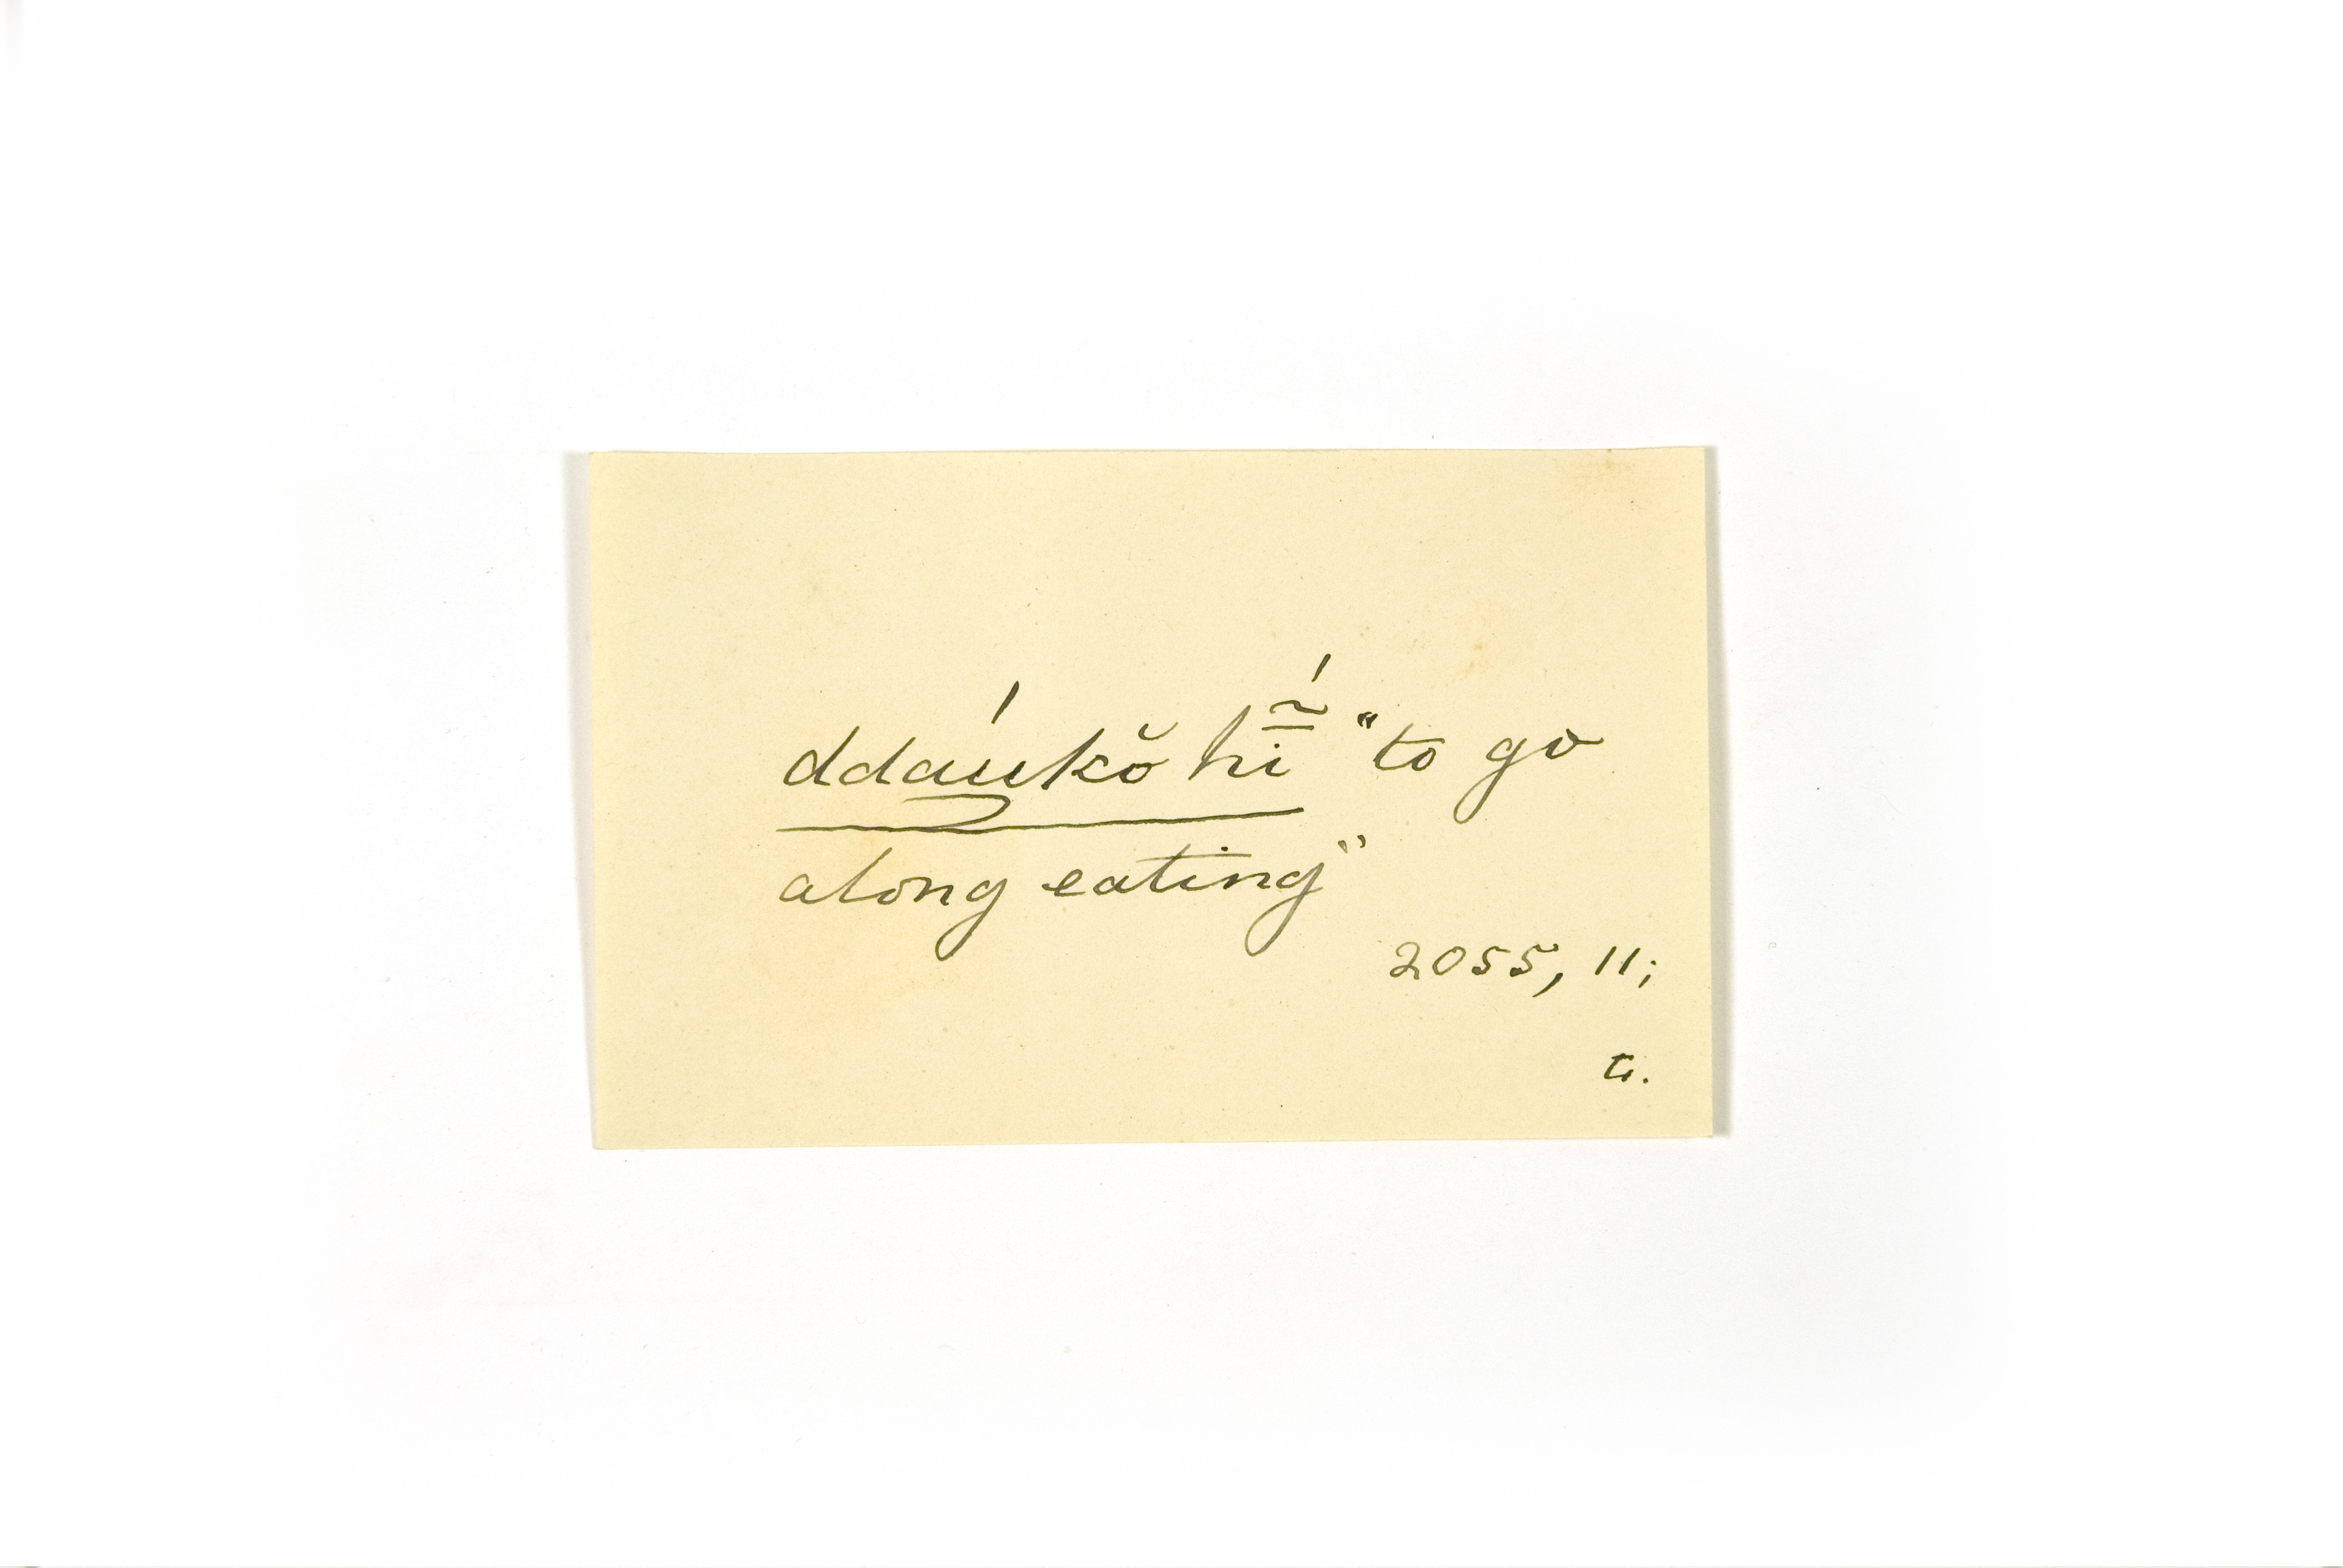 ddaúkŏ hī̃́ "to go
along eating"
2055, 11;
G.